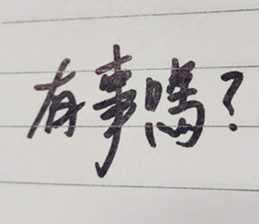 有事嗎?